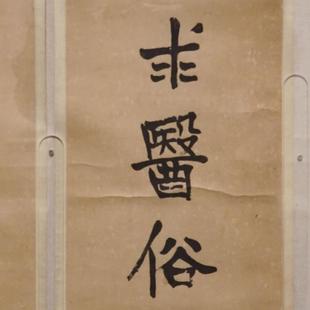 求醫俗